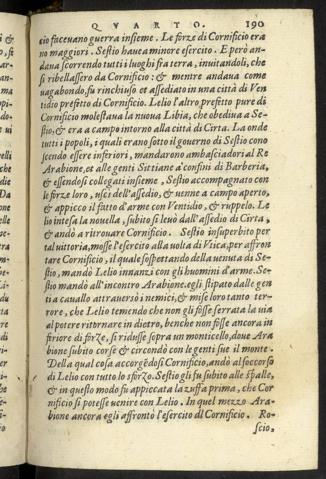 QVARTO. 190
cio faceuano guerra insieme. Le forze di Cornificio era
no maggiori. Sestio haueua minore esercito. E però an-
daua scorrendo tutti i luoghi fra terra, inuitandoli, che
si ribellassero da Cornificio: & mentre andaua come
uagabondo, fu rinchiuso et assediato in una città di Ven
tidio prefetto di Cornificio. Lelio l'altro prefetto pure di
Cornificio molestaua la nuoua Libia, che obediua a Se-
stio, & era a campo intorno alla città di Cirta. La onde
tutti i popoli, i quali erano sotto il gouerno di Sestio cono
scendo essere inferiori, mandarono ambasciadori al Re
Arabione, et alle genti Sittiane a' confini di Barberia,
& essendosi collegati insieme, Sestio accompagnato con
le forze loro, uscì dell'assedio, & uenne a campo aperto,
& appicco il fatto d'arme con Ventidio, & ruppelo. Le
lio intesa la nouella, subito si leuò dall'assedio di Cirta,
& andò a ritrouare Cornificio. Sestio insuperbito per
tal uittoria, mosse l'esercito alla uolta di Vtica, per affron
tare Cornificio, il quale sospettando della uenuta di Se-
stio, mandò Lelio innanzi con gli huomini d'arme. Se-
stio mandò all'incontro Arabione, egli stipato dalle gen
ti a cauallo attrauersò i nemici, & mise loro tanto ter-
rore, che Lelio temendo che non gli fosse serrata la uia
al potere ritornare in dietro, benche non fosse ancora in
feriore di forze, si ridusse sopra un monticello, doue Ara
bione subito corse & circondò con le genti sue il monte.
Della qual cosa accorgedosi Cornificio, andò al soccorso
di Lelio con tutto lo sforzo. Sestio gli fu subito alle spalle,
& in questo modo fu appiccata la zuffa prima, che Cor
nificio si potesse uenire con Lelio. In quel mezzo Ara-
bione ancora egli affrontò l'esercito di Cornificio. Ro-
scio,